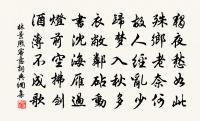 羈夜愁如此
殊鄉老奈何
故人經亂少
歸夢入秋多
衣敝鄰砧動
書沈海雁過
燈前空拂劍
酒薄不成歌
林景熙 詞典網集